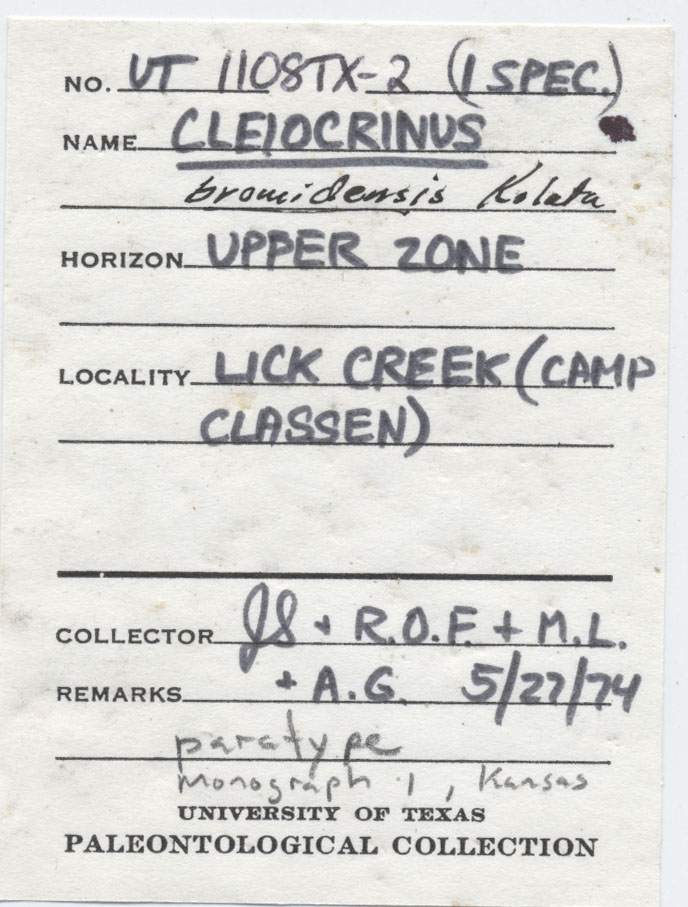 NO. UT 1108TX-2 (1 SPEC.)
NAME CLEIOCRINUS
bromidensis Kolata
HORIZON UPPER ZONE
LOCALITY LICK CREEK (CAMP
CLASSEN)
COLLECTOR JS + R.O.F. + M.L.
REMARKS + A.G. 5/27/74
paratype
Monograph 1, Kansas
UNIVERSITY OF TEXAS
PALEONTOLOGICAL COLLECTION